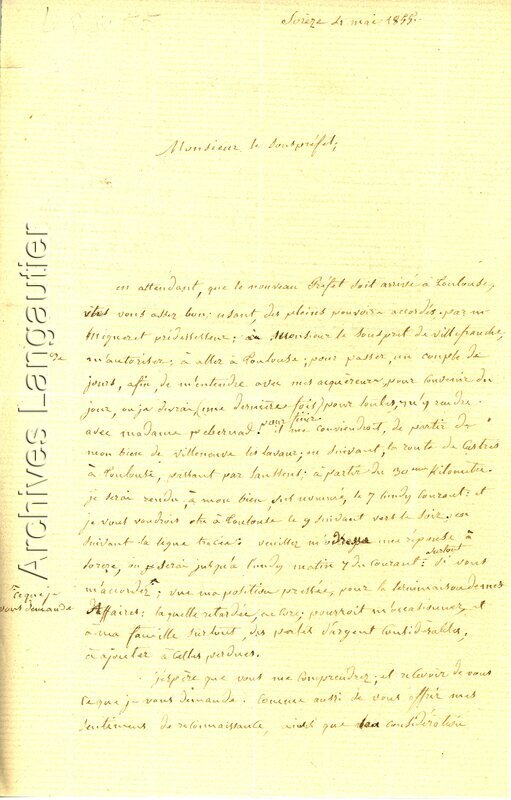 Sorèze 4 mai 1855.
Monsieur le Souspréfet;
en attendant, que le nouveau Préfet soit arrivé à Toulouse,
vous assez bon; usant, des pleins pouvoirs accordés par mr
Migneret prédessesseur; Monsieur le Souspret de villefranche,
de
m'autoriser; à aller à Toulouse; pour passer, un couple de
jours, afin, de m'entendre avec mes acquéreurs, pour convenir du
jour, ou je devrai (une dernière fois) pour toutes, m'y rendre
avec madame pebernad. pour finir
il me conviendroit, de partir de
mon bien de villeneuve les lavaur; en suivant, la route de Castres
à Toulouse, passant par : à partir du 30me kilomètre.
je serai rendu, à mon bien, sus nommé, le 7 lundy courant: et
je voudrois etre à Toulouse le 9 suivant vers le soir, en
suivant la ligne tracée: veuillez m'adresser une réponse à
Soreze, ou je serai jusqu'a lundy matin 7 du courant: surtout si vous
m'accordez
ce que je
vous demande
; vue ma position pressée, pour la terminaison de mes
Affaires; laquelle retardée, encore; pourroit m'occasionner, et
à ma famille surtout, des pertes d'argent considérables,
à ajouter à celles perdues.
j'espère que vous me comprendrez; et recevoir de vous
ce que je vous demande. Comme aussi de vous offrir mes
sentimens de reconnaissance, ainsi que considération
Archives Langautier